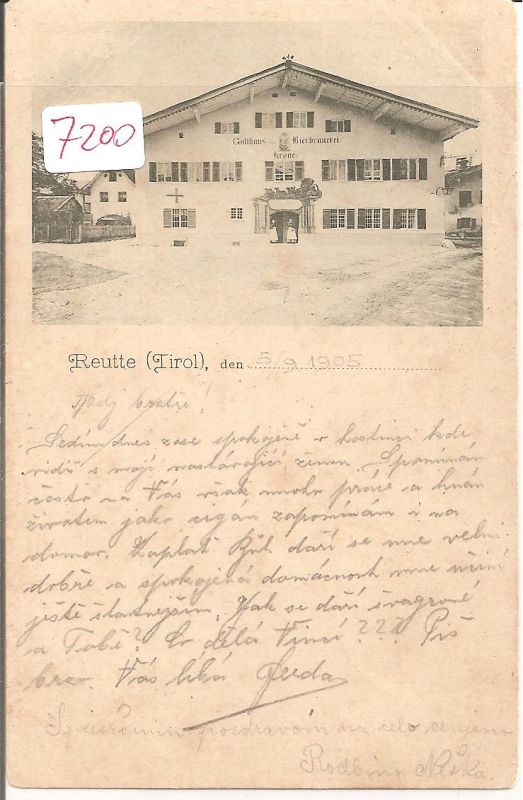 7200
Gasthaus Bierbrauerei
Krone
Reutte (Tirol), den 5/9 1905
bratře!
Sedím dnes zase spokojeně v hostinci kde
vidíš s mojí nastávající ženou. Spomínám
často na Vás však mnoho práce a hnán
životem jako cigán zapomínám i na
domov. Zaplať Bůh daří se mne velmi
dobře a spokojená domácnost mne učiní
ještě šťastnějším. Jak se daří švagrové
a Tobě? Co dělá Vinci??? Piš
brzo. Vás líbá
S pozdravom na celo
Rodbino